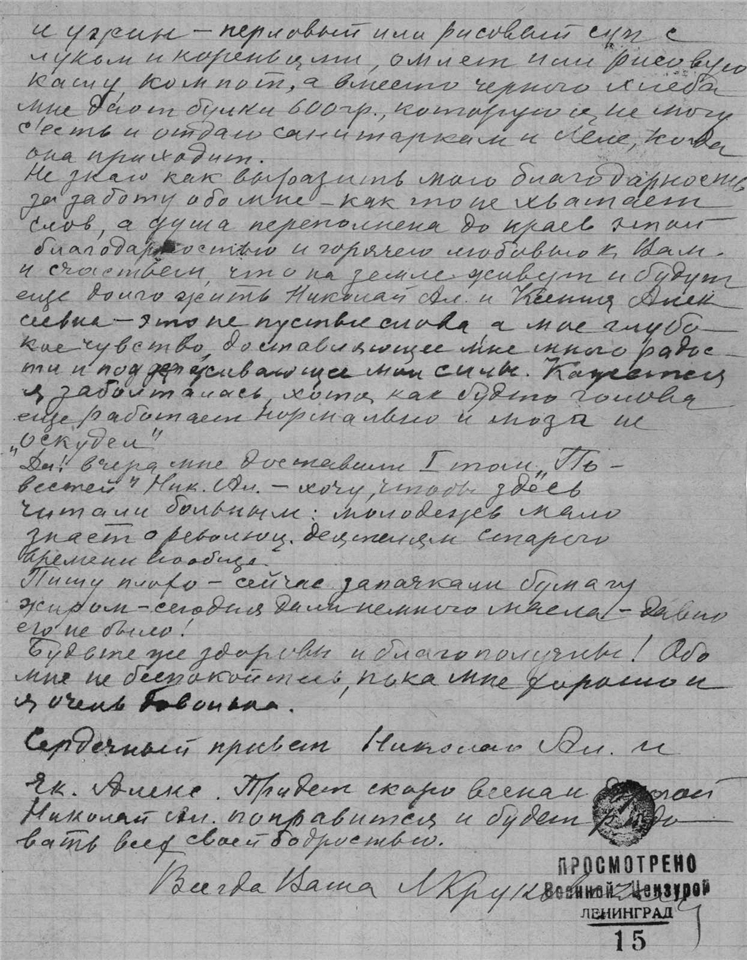 и ужин – перловый или рисовый суп с
луком и кореньями, омлет или рисовую
кашу, компот, а вместо черного хлеба
мне дают булки 600 гр., которую я не могу
съесть и отдаю санитаркам и Леле, когда
она приходит.
Не знаю как выразить мою благодарность
за заботу обо мне – как то не хватает
слов, а душа переполнена до краев этой
благодарностью и горячею любовью к Вам.
и счастьем, что на земле живут и будут
еще долго жить Николай Ал. и Ксения Алек
сеевна – это не пустые слова а мое глубо–
кое чувство, доставляющее мне много радос–
ти и поддерживающее мои силы. Кажется
я заболталась, хотя как будто голова
еще работает нормально и мозг не
„оскудел"
Да! вчера мне доставили I том „По–
вестей" Ник. Ал. – хочу, чтобы здесь
читали больным: молодежь мало
знает о революц. деятелям старого
времени вообще.
Пишу плохо – сейчас запачкали бумагу
жиром – сегодня дали немного масла – давно
его не было!
Будьте же здоровы и благополучны! Обо
мне не беспокойтесь, пока мне хорошо и
я очень довольна.
Сердечный привет Николаю Ал. и
Як. Алекс. Придет скоро весна и
Николай Ал. поправится и будет радо–
вать всех своей бодростью.
Всегда Ваша
ПРОСМОТРЕНО
Военной Цензурой
ЛЕНИНГРАД
15